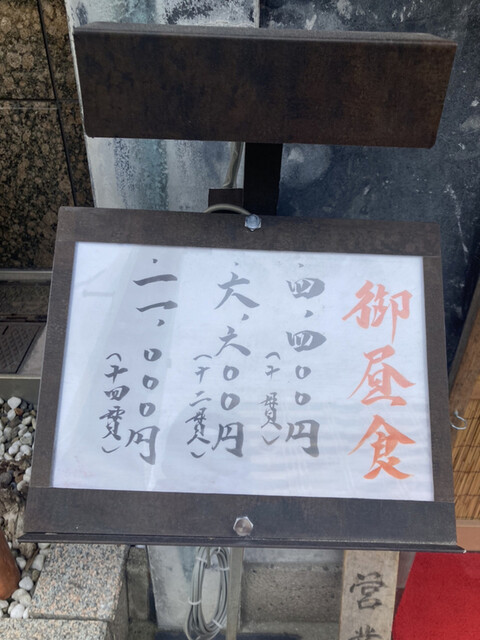 御昼食
一、四、四〇〇円
（十貫）
一、六、六〇〇円
（十二貫）
一、一一、〇〇〇円
（十四貫）
営業